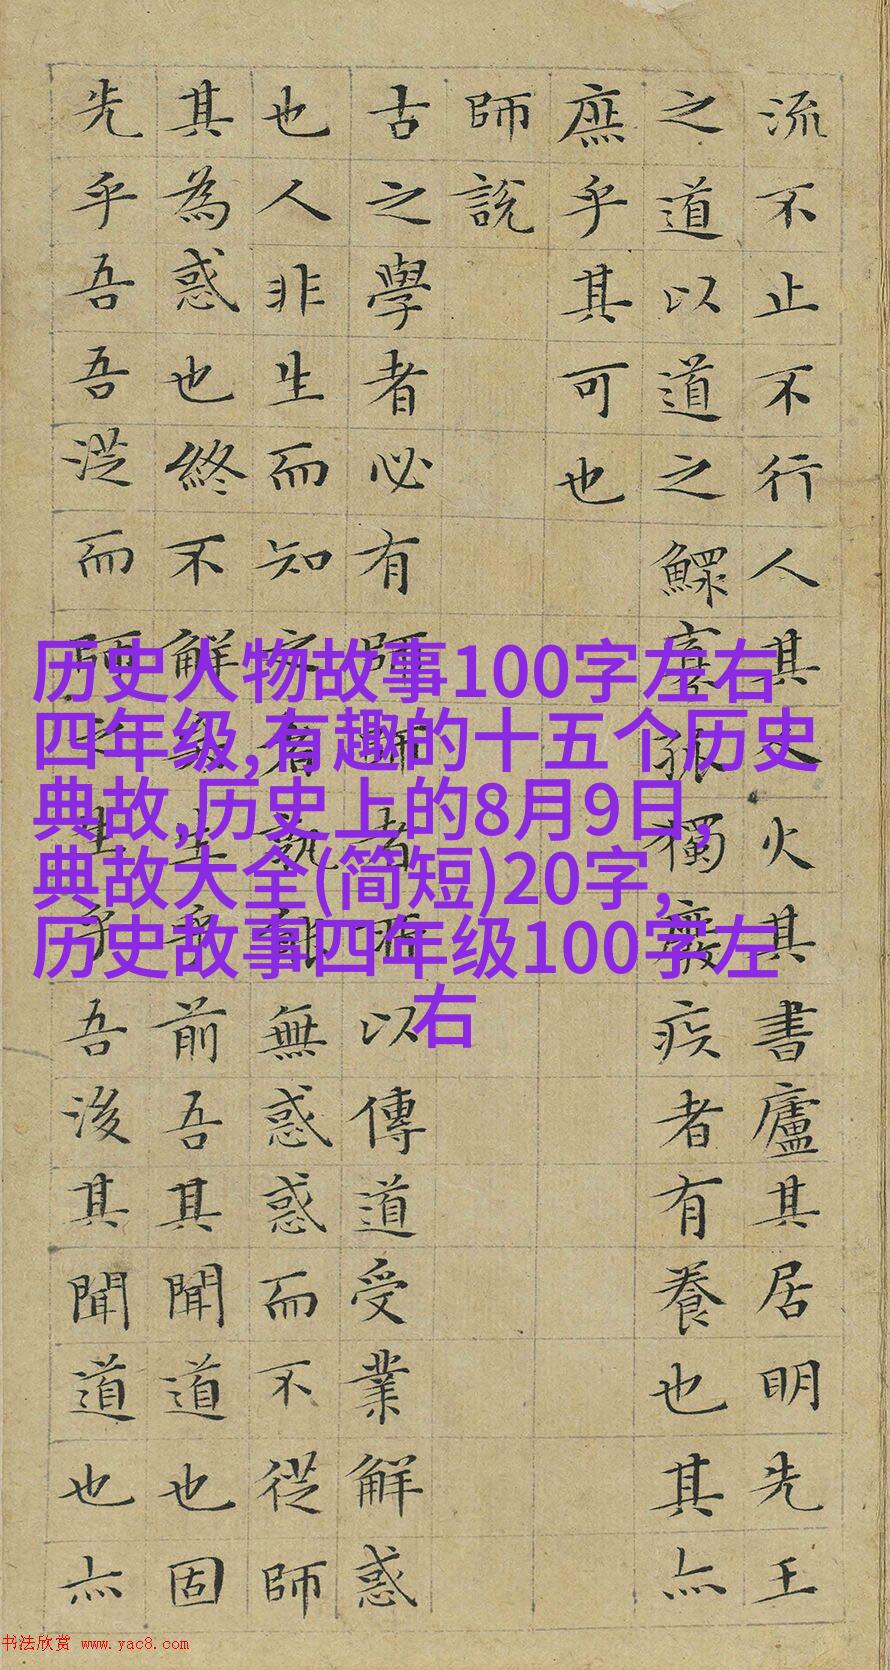 流不止不行人其人火其書廬其居明先王
之道以道之鰥寡孤獨廢疾者有養也其亦
庶乎其可也
師說
古之學者必有師師者所以傳道受業解惑
也人非生而知之者孰能無惑惑而不從師
其為惑也終不解矣生乎前吾其聞道也固
先乎吾吾從而師之生乎吾後其聞道也亦
历史人物故事100字左右
四年级,有趣的十五个历史
典故,历史上的8月9日,
典故大全(简短)20字,
历史故事四年级100字左
右
书法欣赏 www.yac8.com